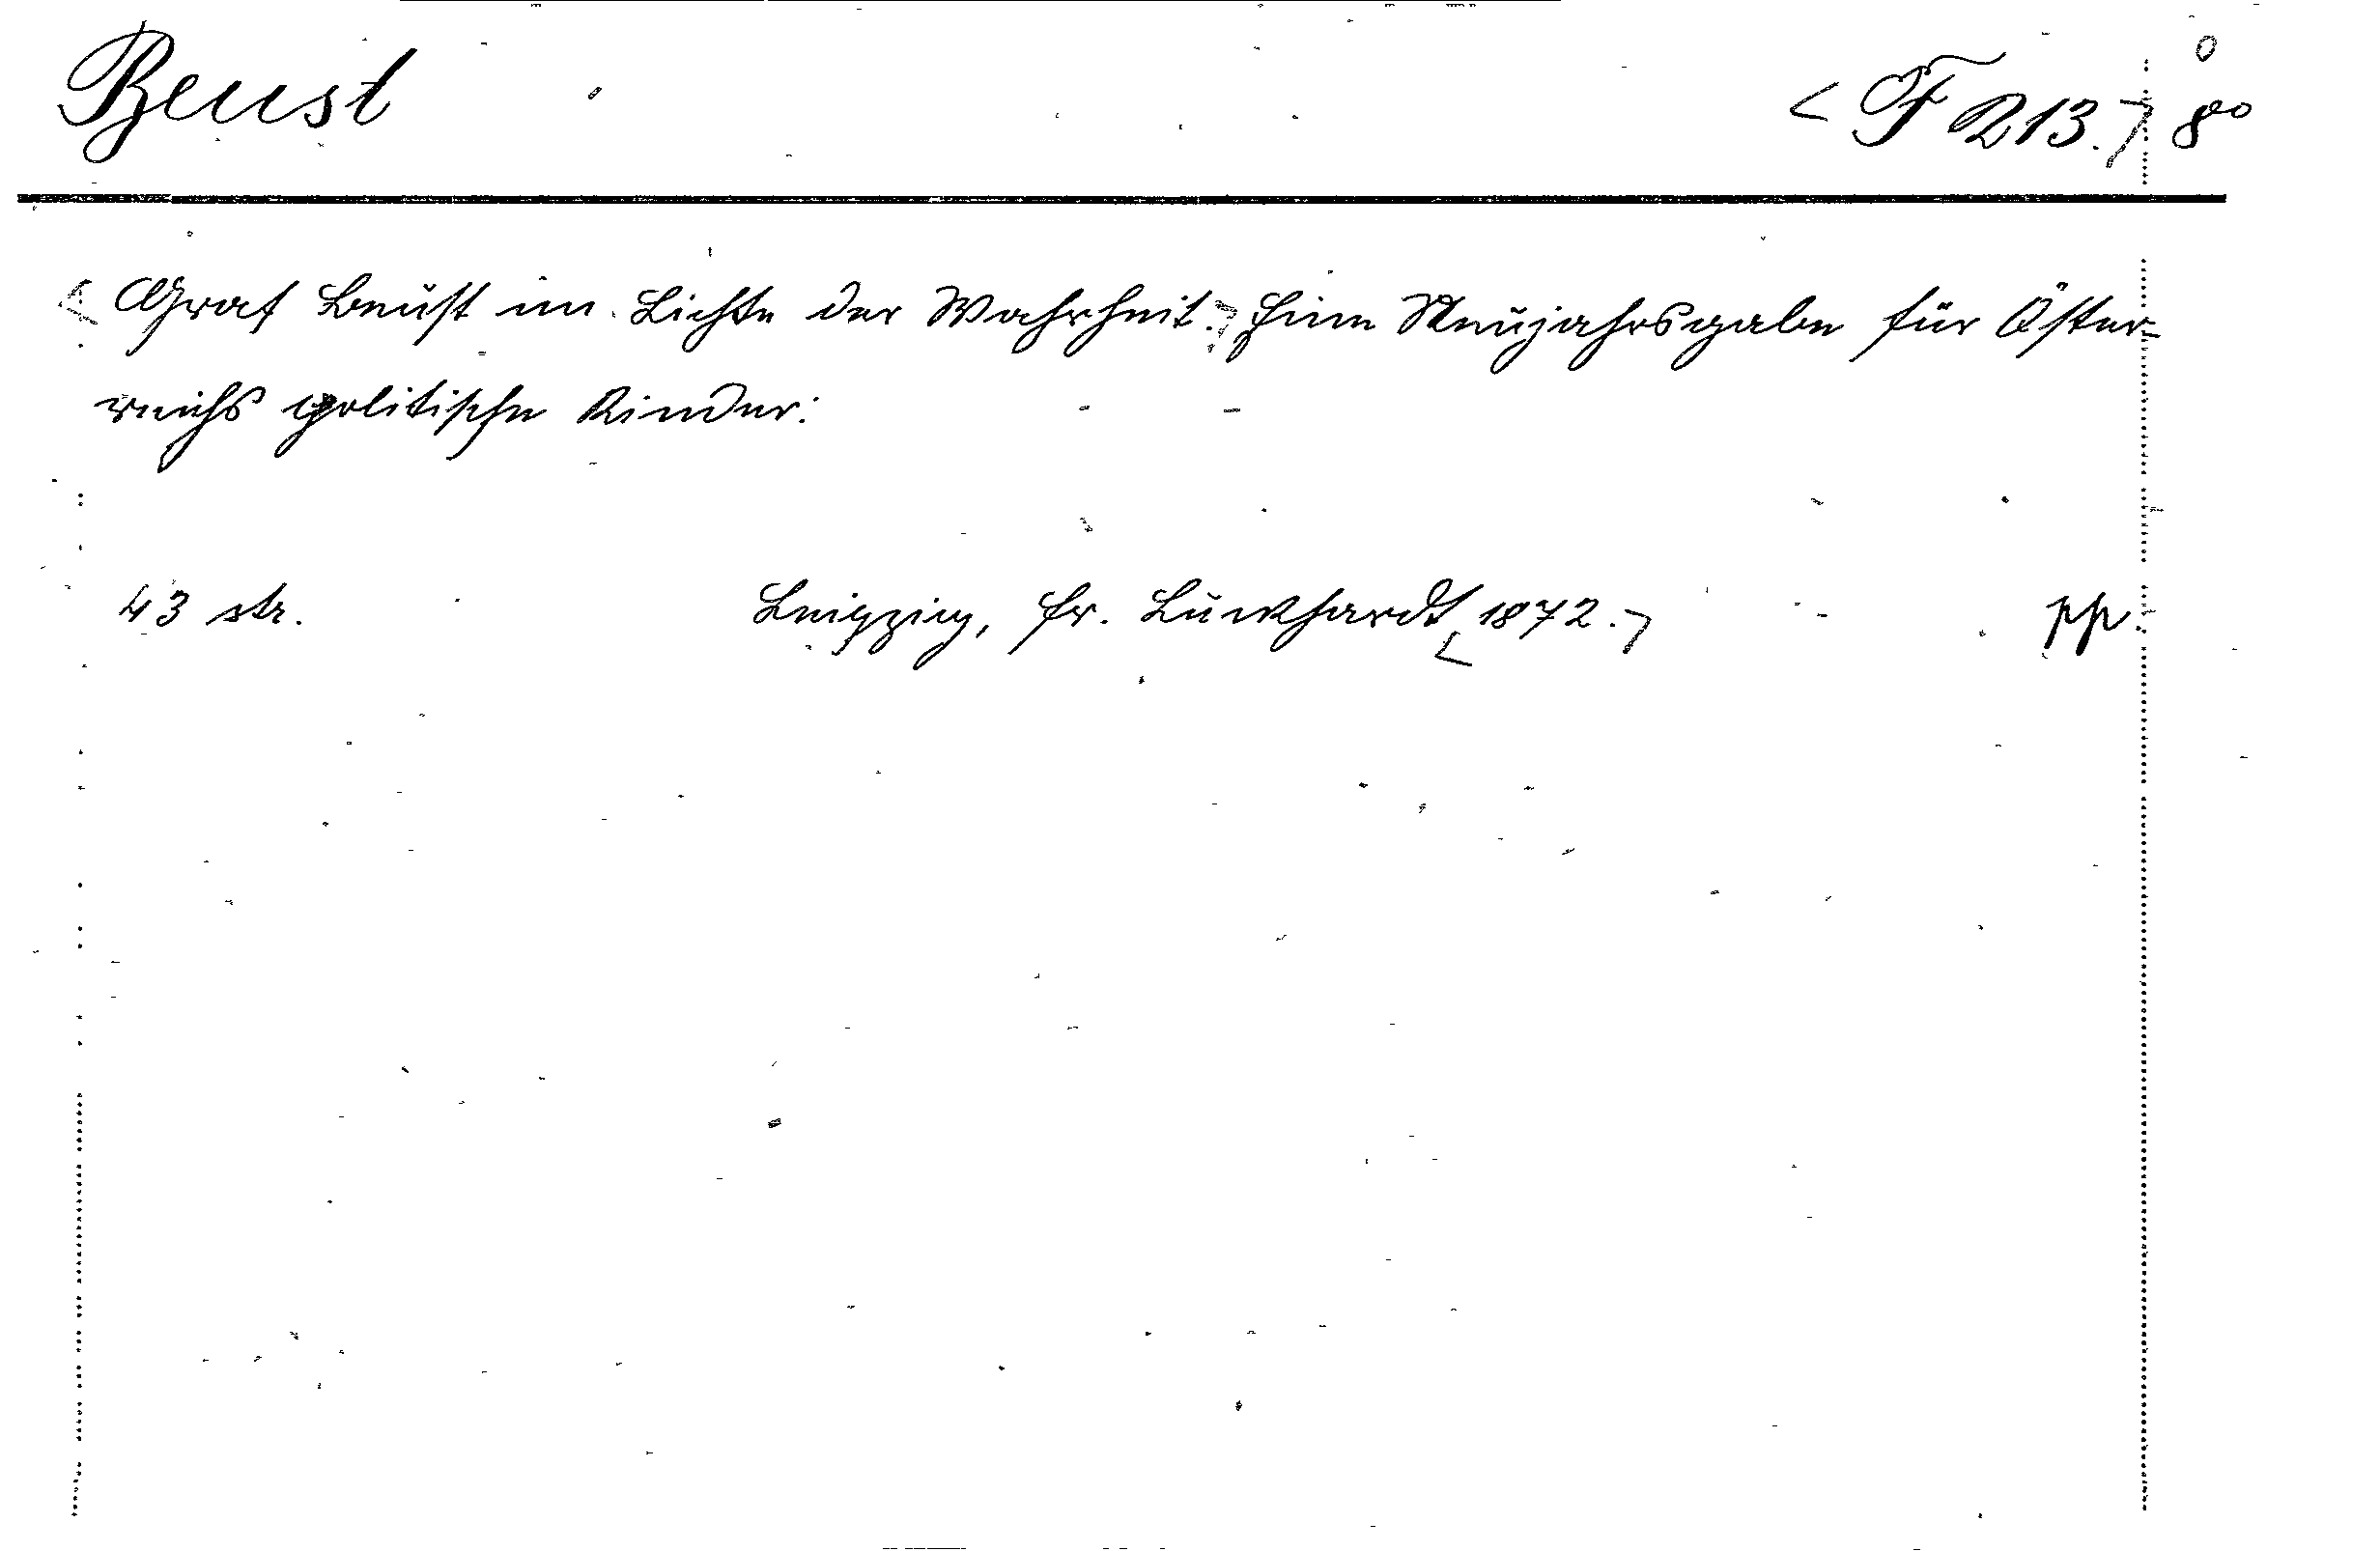 Beust <F 213.> 8°
<Graf Beust im Lichte der Wahrheit.> Eine Neujahrsgabe für Öster-
reichs politische Kinder:
43 str. Leipzig, Fr. Luckhardt <1872.> pp.